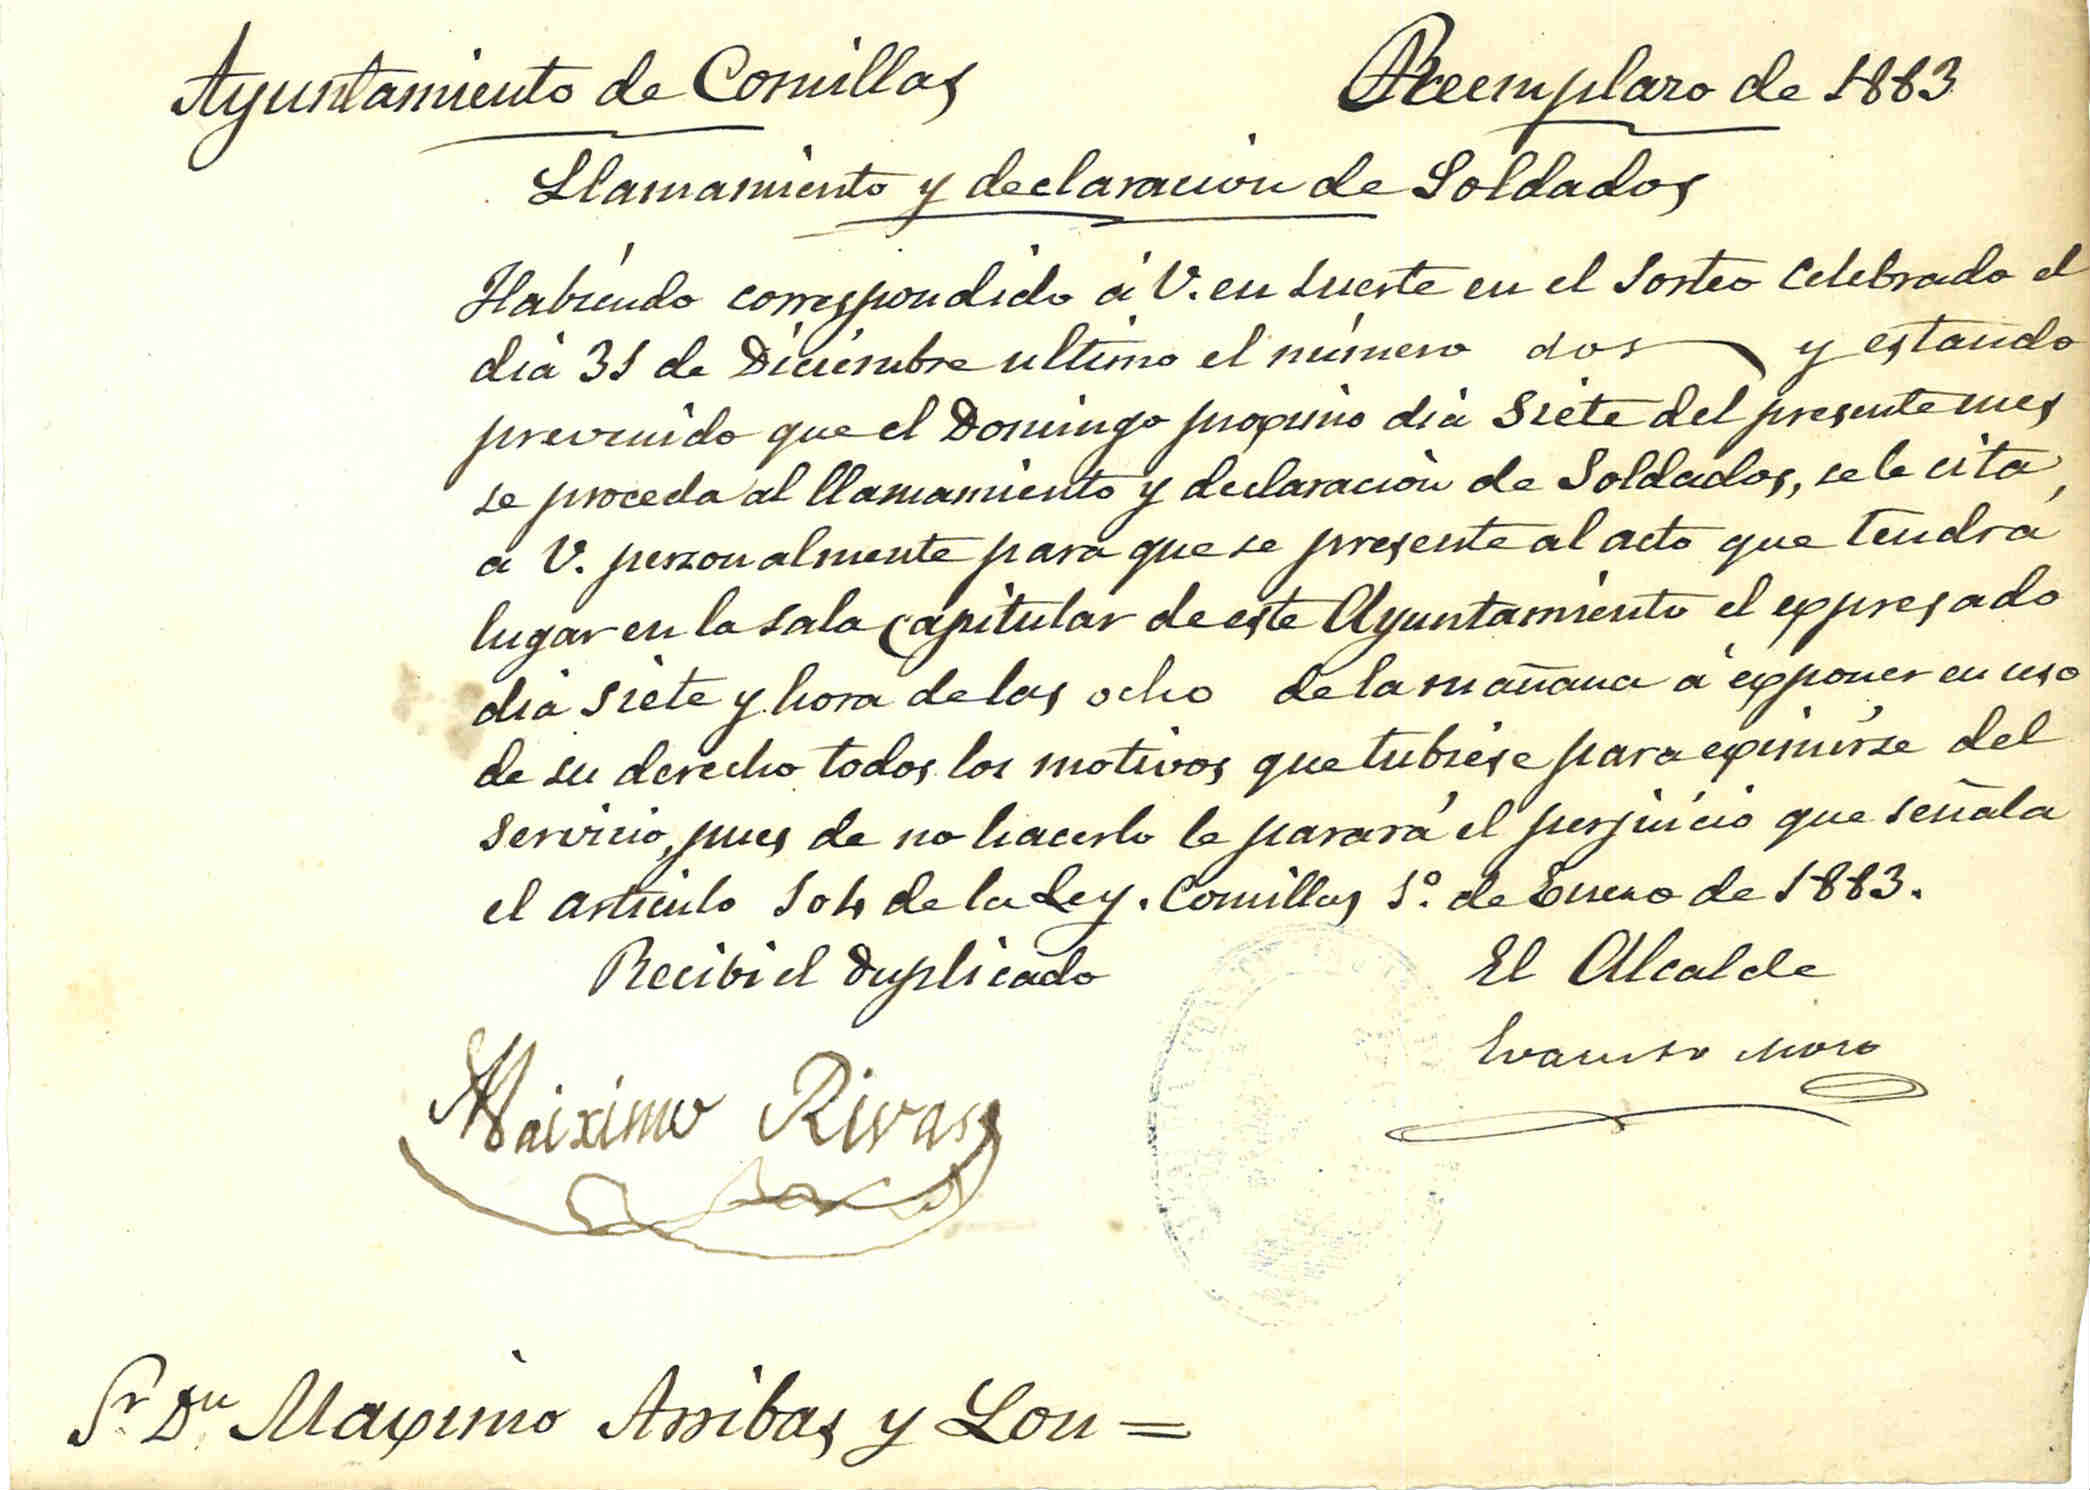 Ayuntamiento de Comillas
Reemplazo de 1883
Llamamiento y declaracion de Soldados
Habiendo correspondido á V. en suerte en el Sorteo Celebrado el
dia 31 de Diciembre ultimo el número dos y estando
prevenido que el Domingo proximo dia Siete del presente mes
se proceda al llamamiento y declaracion de Soldados, se le cita,
a V. personalmente para que se presente al acto que tendrá
lugar en la sala Capitular de este Ayuntamiento el expresado
dia siete y hora de las ocho de la mañana á exponer en uso
de su derecho todos los motivos que tubiese para eximirse del
servicio, pues de no hacerlo le parará el perjuicio que señala
el articulo 104 de la Ley. Comillas 1º. de Enero de 1883.
Recibi el Duplicado
El Alcalde
Evaristo Moro
Máximo Rivas
Sr. Dn. Maximo Arribas y Lon =